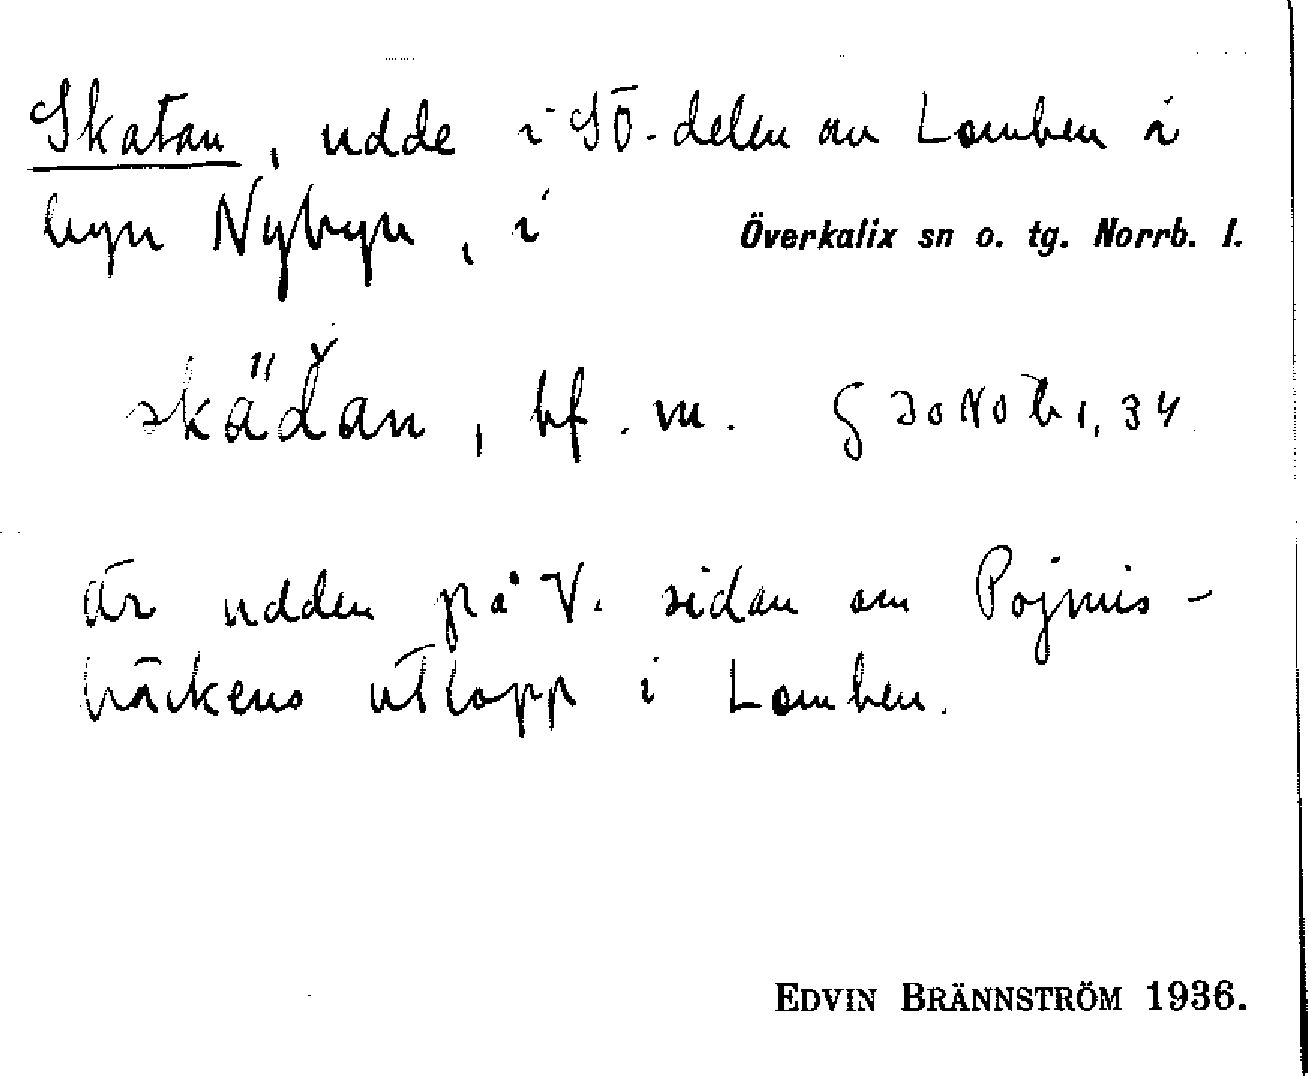 Skatan, udde i SÖ-delen av Lomben i
byn Nybyn, i Överkalix sn o. tg. Norrb. l.
skädan, bf. m. G 30 NO b 1, 34
är udden på V. sidan om Pojmis-
bäckens utlopp i Lomben.
EDVIN BRÄNNSTRÖM 1936.